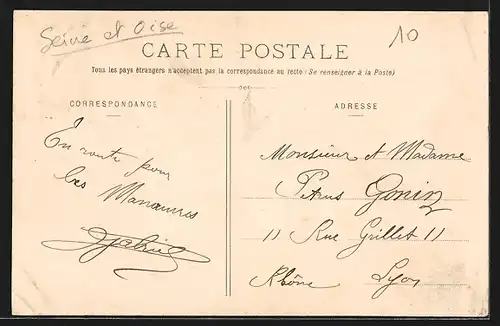 Seine et Oise
10
CARTE POSTALE
Tous les pays étrangers n'acceptent pas la correspondance au recto (Se renseigner à la Poste)
CORRESPONDANCE
ADRESSE
En route pour
les Manœuvres
Monsieur et Madame
Petrus Gonin
11 Rue Grillet 11
Lyon
Rhône